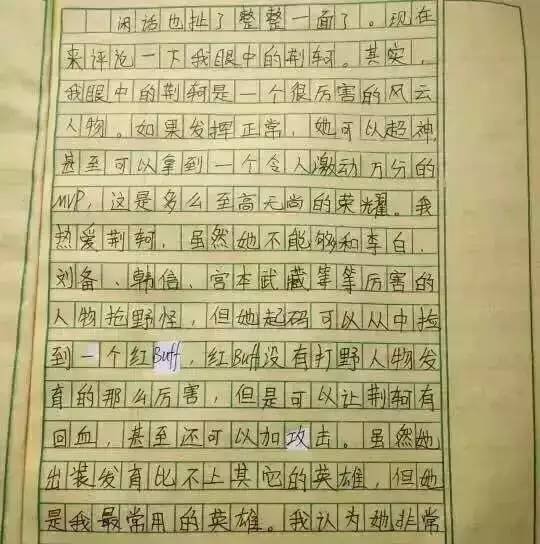 闲话也扯了整整一面了。现在
来评论一下我眼中的荆轲。其实，
我眼中的荆轲是一个很厉害的风云
人物。如果发挥正常，她可以超神，
甚至可以拿到一个令人激动万分的
MVP，这是多么至高无尚的荣耀。我
热爱荆轲，虽然她不能够和李白、
刘备、韩信、宫本武藏等等厉害的
人物抢野怪，但她起码可以从中捡
到一个红Buff，红Buff没有打野人物发
育的那么厉害，但是可以让荆轲有
回血，甚至还可以加攻击。虽然她
出装发育比不上其它的英雄，但她
是我最常用的英雄。我认为她非常